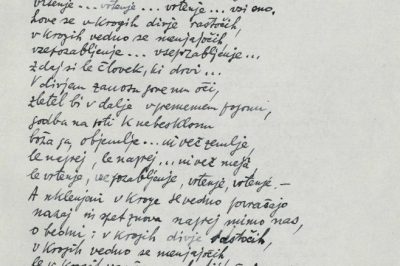 vrtenje ... vrtenje ... vrtenje ... vsi eno.
Love se v krogih divje rastočih,
v krogih vedno se menjajočih,
vsepozabljenje ... vsepozabljenje ...
zdaj si le človek, ki drvi ...
V divjem zanosu gore mu oči,
zletel bi v dalje v
godba na poti k nebesklonu
boža ga, objemlje ... ni več zemlje,
le naprej, le naprej ... ni več mejá
le vrtenje, vsepozabljenje, vrtenje, vrtenje. –
A uklenjeni v kroge se vedno povračajo
nazaj in spet znova naprej mimo nas,
o bedni: v krogih divje rastočih,
v krogih vedno se menjajočih
le v krogih